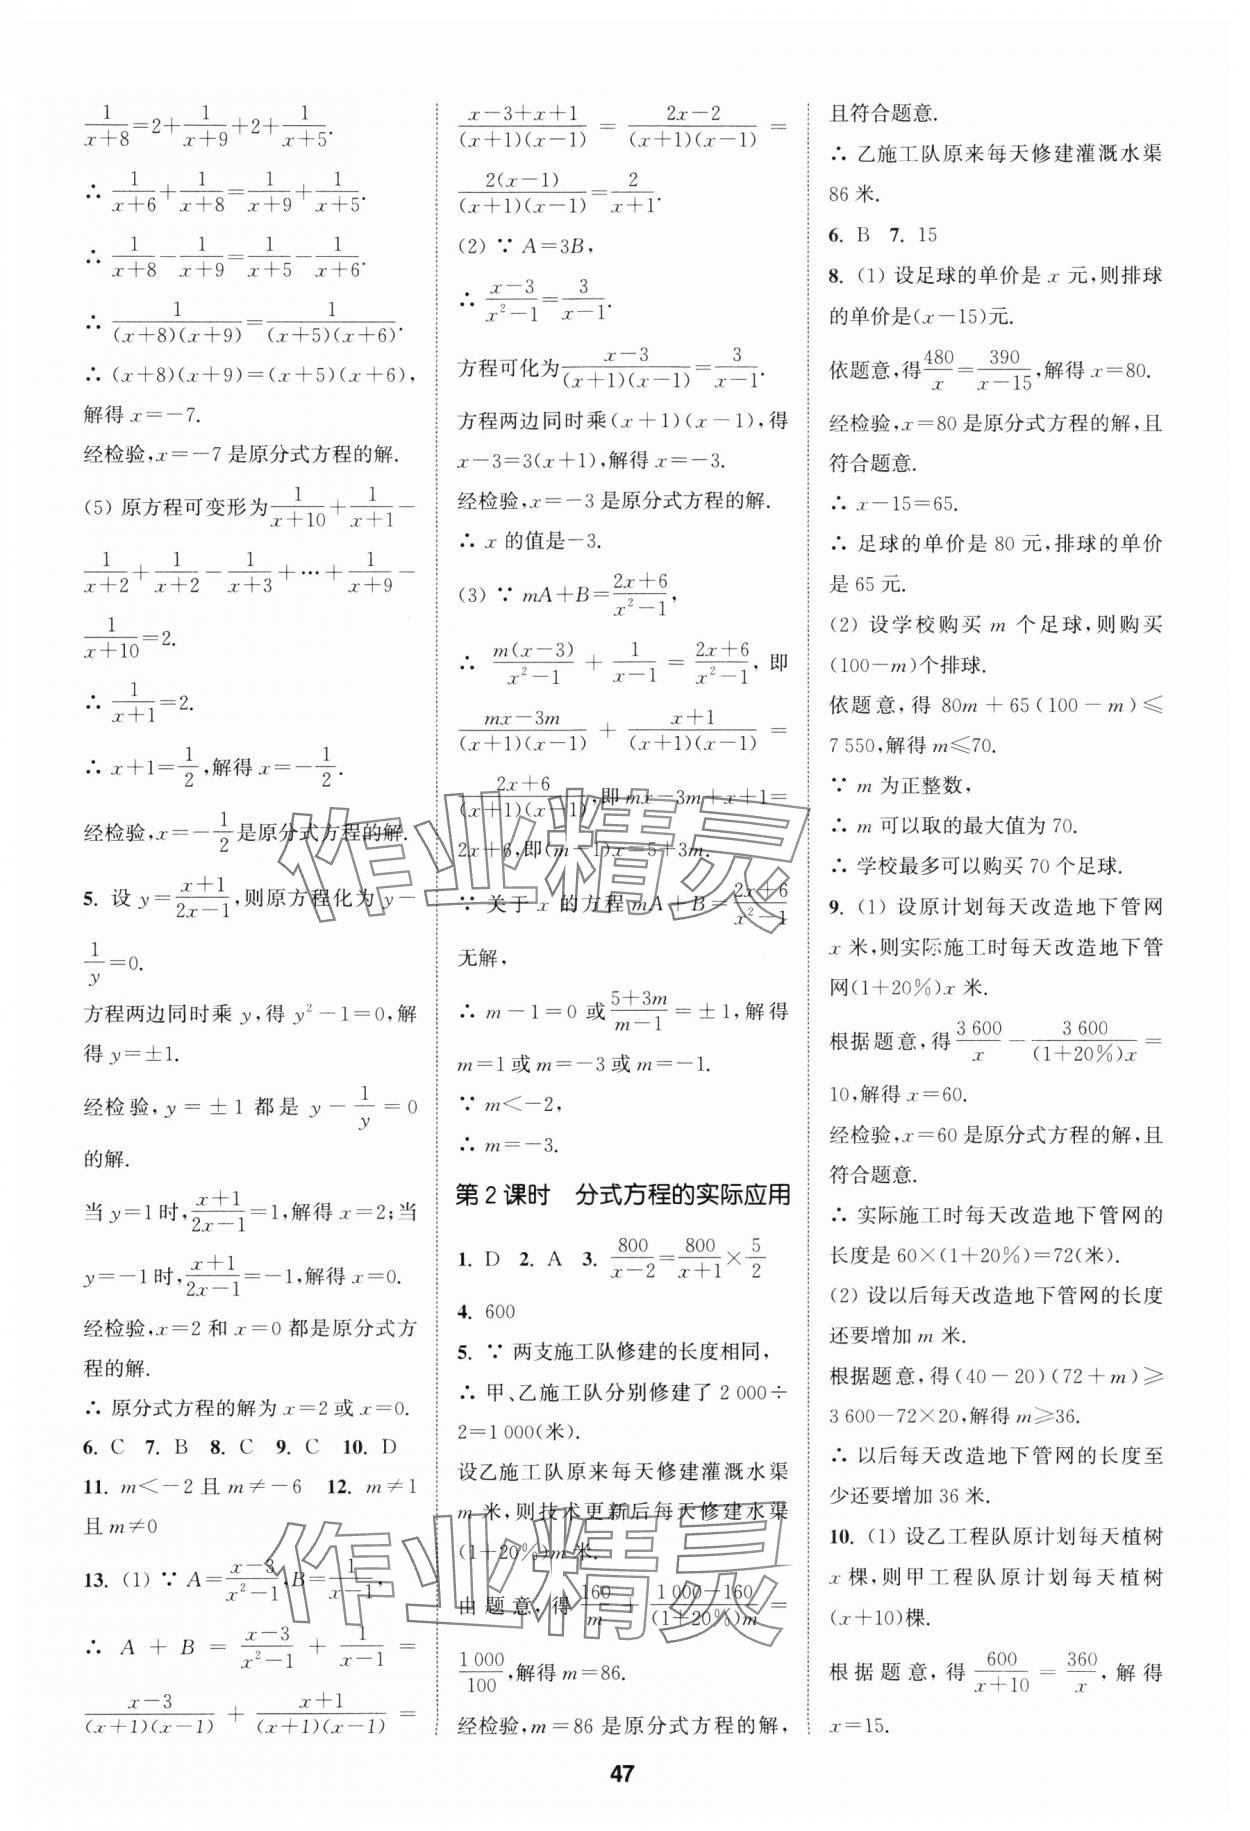 1/(x+8)=2+1/(x+9)+2+1/(x+5).
∴ 1/(x+6)+1/(x+8)=1/(x+9)+1/(x+5).
∴ 1/(x+8)-1/(x+9)=1/(x+5)-1/(x+6).
∴ 1/((x+8)(x+9))=1/((x+5)(x+6)).
∴ (x+8)(x+9)=(x+5)(x+6),
解得 x=-7.
经检验,x=-7 是原分式方程的解.
(5) 原方程可变形为 1/(x+10)+1/(x+1)-
1/(x+2)+1/(x+2)-1/(x+3)+…+1/(x+9)-
1/(x+10)=2.
∴ 1/(x+1)=2.
∴ x+1=1/2,解得 x=-1/2.
经检验,x=-1/2是原分式方程的解.
5. 设 y=(x+1)/(2x-1),则原方程化为 y-
1/y=0.
方程两边同时乘 y,得 y²-1=0,解
得 y=±1.
经检验, y=±1 都是 y-1/y=0
的解.
当 y=1时,(x+1)/(2x-1)=1,解得 x=2;当
y=-1时,(x+1)/(2x-1)=-1,解得 x=0.
经检验,x=2 和 x=0 都是原分式方
程的解.
∴ 原分式方程的解为 x=2 或 x=0.
6. C 7. B 8. C 9. C 10. D
11. m<-2 且 m≠-6 12. m≠1
且 m≠0
13. (1) ∵ A=(x-3)/(x²-1),B=1/(x-1),
∴ A+B=(x-3)/(x²-1)+1/(x-1)=
(x-3)/((x+1)(x-1))+(x+1)/((x+1)(x-1))=
(x-3+x+1)/((x+1)(x-1))=(2x-2)/((x+1)(x-1))=
2(x-1)/((x+1)(x-1))=2/(x+1).
(2) ∵ A=3B,
∴ (x-3)/(x²-1)=3/(x-1).
方程可化为(x-3)/((x+1)(x-1))=3/(x-1).
方程两边同时乘(x+1)(x-1),得
x-3=3(x+1),解得 x=-3.
经检验,x=-3 是原分式方程的解.
∴ x 的值是-3.
(3) ∵ mA+B=(2x+6)/(x²-1),
∴ m(x-3)/(x²-1)+1/(x-1)=(2x+6)/(x²-1),即
(mx-3m)/((x+1)(x-1))+(x+1)/((x+1)(x-1))=
(2x+6)/((x+1)(x-1)),即 mx-3m+x+1=
2x+6,即(m-1)x=5+3m.
∵ 关于 x 的方程 mA+B=(2x+6)/(x²-1)
无解,
∴ m-1=0 或(5+3m)/(m-1)=±1,解得
m=1 或 m=-3 或 m=-1.
∵ m<-2,
∴ m=-3.
第 2 课时 分式方程的实际应用
1. D 2. A 3. 800/(x-2)=800/(x+1)×5/2
4. 600
5. ∵ 两支施工队修建的长度相同,
∴ 甲、乙施工队分别修建了 2 000÷
2=1 000(米).
设乙施工队原来每天修建灌溉水渠
m 米,则技术更新后每天修建水渠
(1+20%)m 米.
由题意,得 160/m+(1 000-160)/((1+20%)m)=
1 000/100,解得 m=86.
经检验,m=86 是原分式方程的解,
且符合题意.
∴ 乙施工队原来每天修建灌溉水渠
86 米.
6. B 7. 15
8. (1) 设足球的单价是 x 元,则排球
的单价是(x-15)元.
依题意,得480/x=390/(x-15),解得 x=80.
经检验,x=80 是原分式方程的解,且
符合题意.
∴ x-15=65.
∴ 足球的单价是 80 元,排球的单价
是 65 元.
(2) 设学校购买 m 个足球,则购买
(100-m)个排球.
依题意,得 80m+65(100-m)≤
7 550,解得 m≤70.
∵ m 为正整数,
∴ m 可以取的最大值为 70.
∴ 学校最多可以购买 70 个足球.
9. (1) 设原计划每天改造地下管网
x 米,则实际施工时每天改造地下管
网(1+20%)x 米.
根据题意,得3 600/x-3 600/((1+20%)x)=
10,解得 x=60.
经检验,x=60 是原分式方程的解,且
符合题意.
∴ 实际施工时每天改造地下管网的
长度是 60×(1+20%)=72(米).
(2) 设以后每天改造地下管网的长度
还要增加 m 米.
根据题意,得(40-20)(72+m)≥
3 600-72×20,解得 m≥36.
∴ 以后每天改造地下管网的长度至
少还要增加 36 米.
10. (1) 设乙工程队原计划每天植树
x 棵,则甲工程队原计划每天植树
(x+10)棵.
根据题意,得 600/(x+10)=360/x,解得
x=15.
作业精灵
作业精灵
47